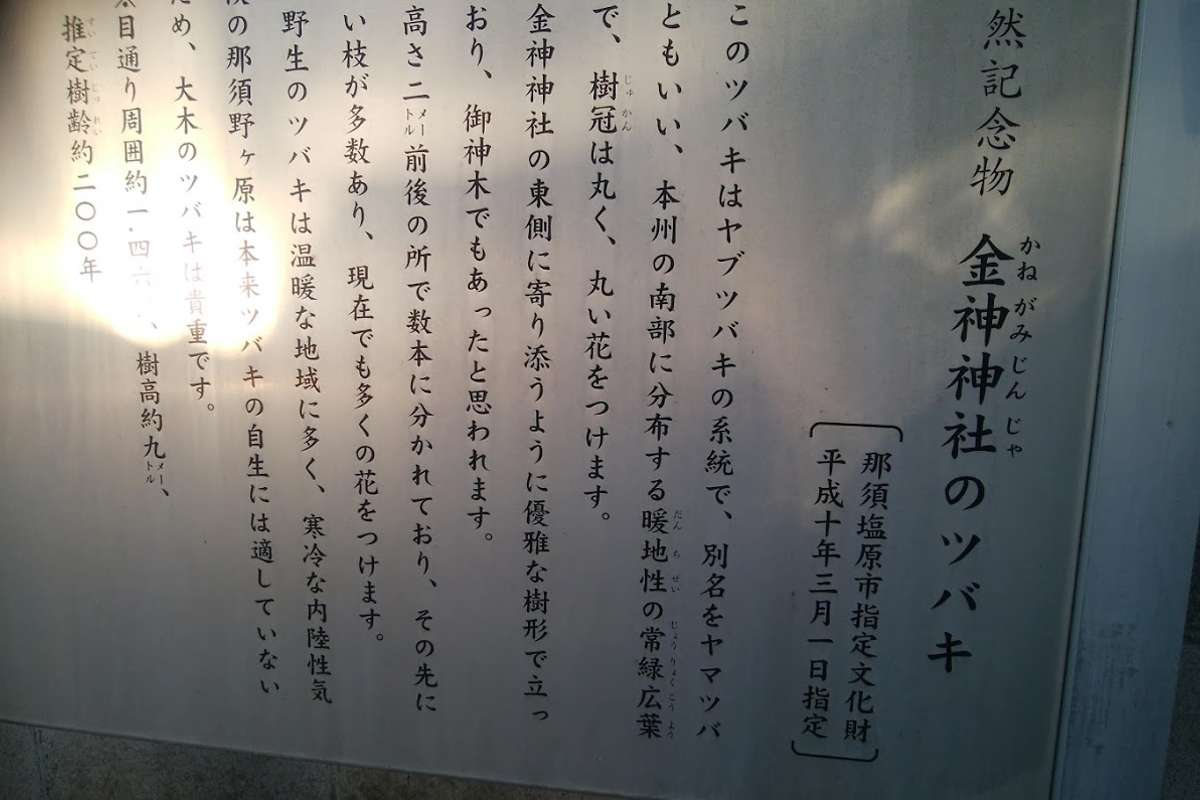 然記念物 金神神社のツバキ
かねがみじんじゃ
那須塩原市指定文化財
平成十年三月一日指定
このツバキはヤブツバキの系統で、別名をヤマツバ
ともいい、本州の南部に分布する暖地性の常緑広葉
だんちせい じょうりょくこうよう
で、樹冠は丸く、丸い花をつけます。
じゅかん
金神神社の東側に寄り添うように優雅な樹形で立っ
おり、御神木でもあったと思われます。
高さ二メートル前後の所で数本に分かれており、その先に
い枝が多数あり、現在でも多くの花をつけます。
野生のツバキは温暖な地域に多く、寒冷な内陸性気
の那須野ヶ原は本来ツバキの自生には適していない
ため、大木のツバキは貴重です。
目通り周囲約一.四六、樹高約九メートル、
推定樹齢約二〇〇年
すいていじゅれい